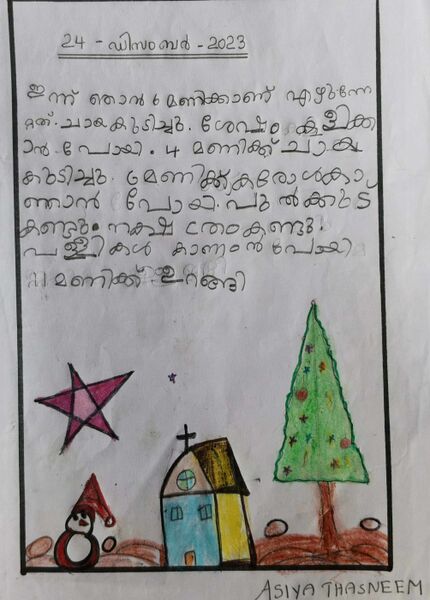 24 - ഡിസംബർ - 2023
ഇന്ന് ഞാൻ 6 മണിക്കാണ് എഴുന്നേ
റ്റത്. ചായകുടിച്ചു. ശേഷം കുളിക്ക
ാൻ പോയി. 4 മണിക്ക് ചായ
കുടിച്ചു. 6മണിക്ക് കരോൾകാ
ഞാൻ പോയി. പുൽക്കൂട
കണ്ടും നക്ഷത്രംകണ്ടു.
പള്ളികൾ കാണാൻ പോയി
11 മണിക്ക് ഉറങ്ങി
ASIYA THASNEEM